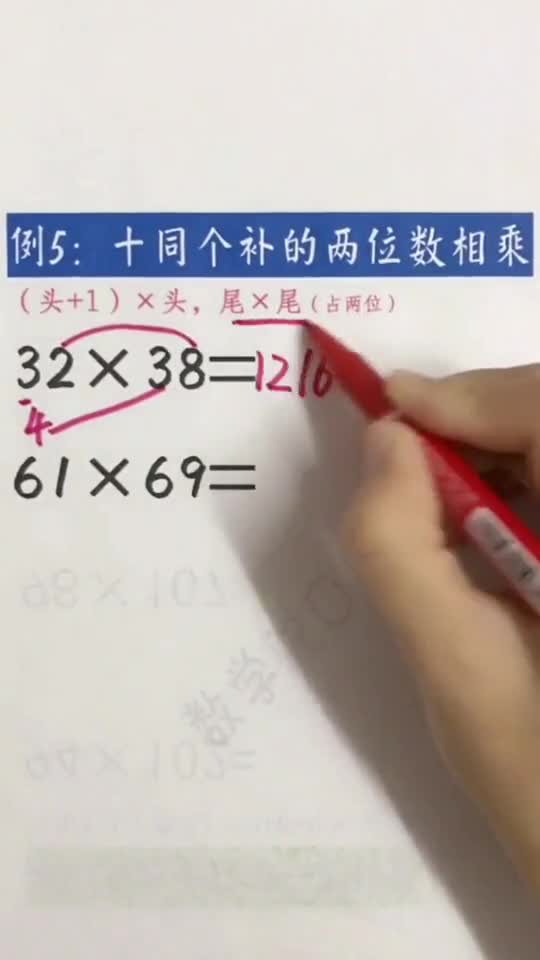 例5：十同个补的两位数相乘
（头+1）×头，尾×尾（占两位）
32×38=1216
4
61×69=